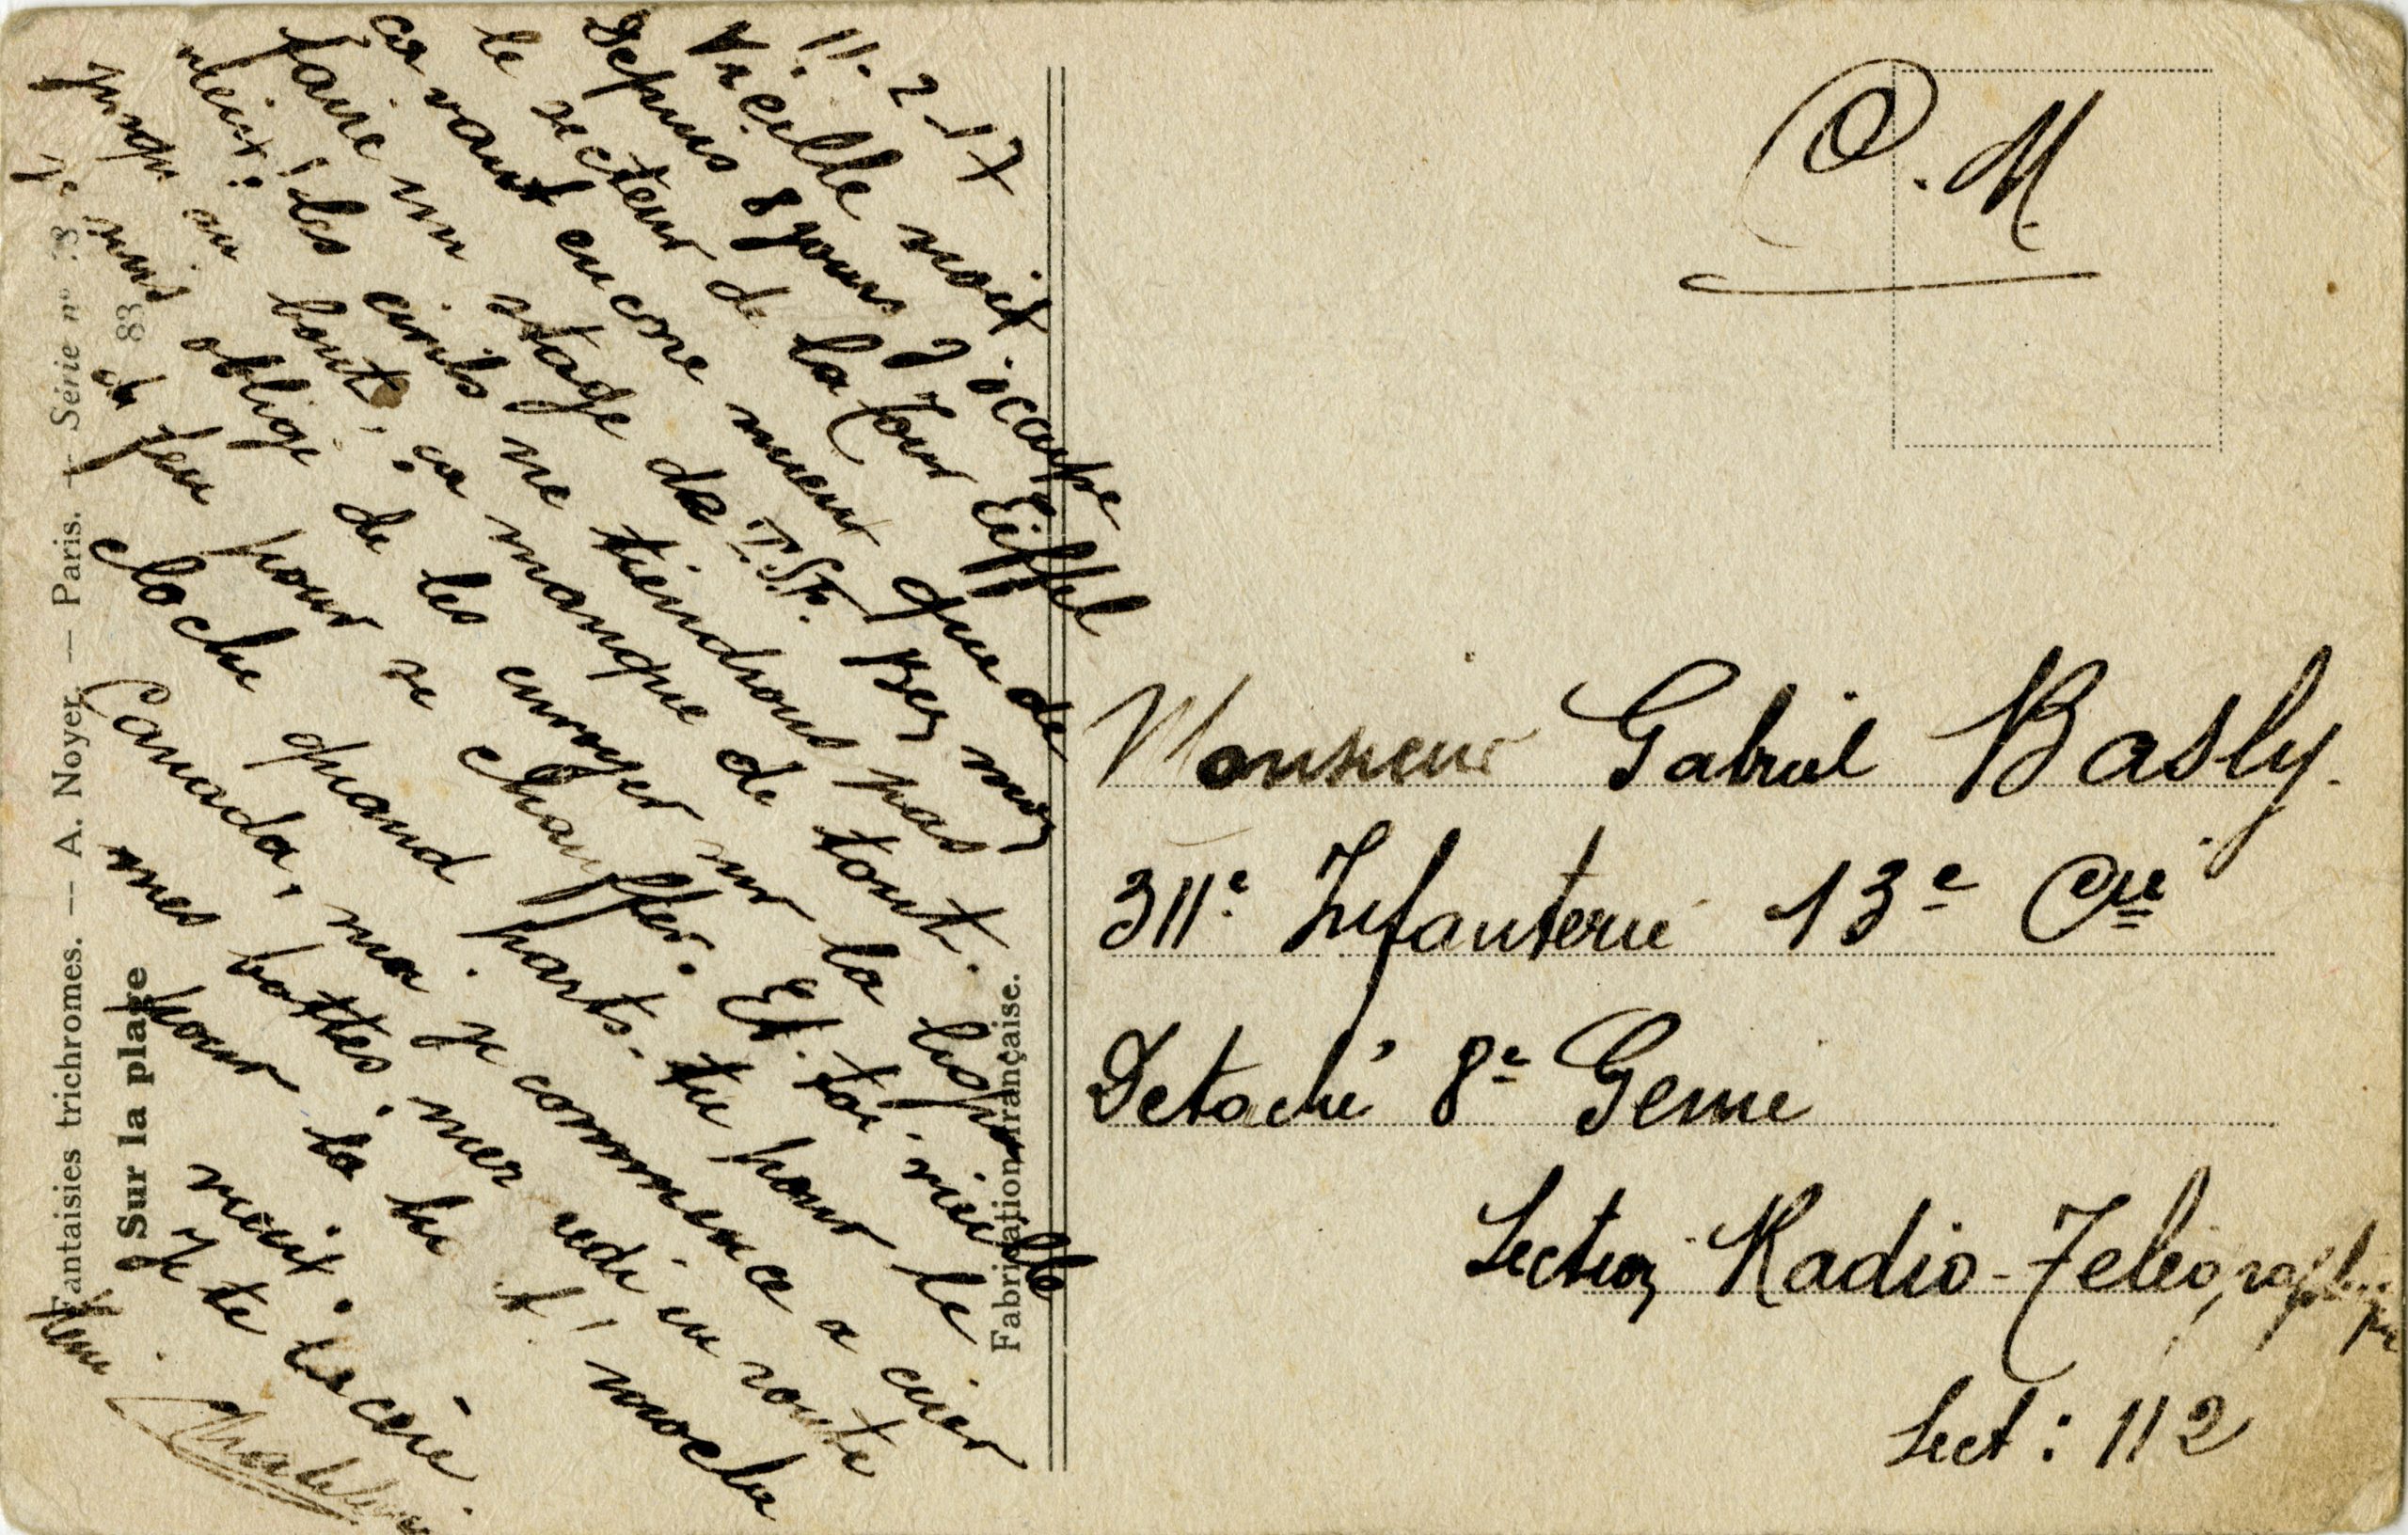 11-2-17
Vieille noix.
Depuis 8 jours j'occupe
le secteur de la Tour Eiffel
ca vaut encore mieux que de
faire un stage de T.S.F. Bez moz
vieux! les civils ne tiendrons pas
jusqu au bout, ça manque de tout.
je suis obligé de les envoyer sur la
du feu pour se chauffer. Et toi vieille
cloche quand parts-tu pour le
Canada, moi je commence a cirer
mes bottes, mercredi en route
pour
vieux.
Je te
C.M.
Monsieur Gabriel Basly.
311e Infanterie 13e Cie
Detaché 8e Genie
Section Radio-Telegraphique
Sect: 112
Fantaisies trichromes. — A. Noyer — Paris. — Série no 83
Sur la plage
Fabrication française.